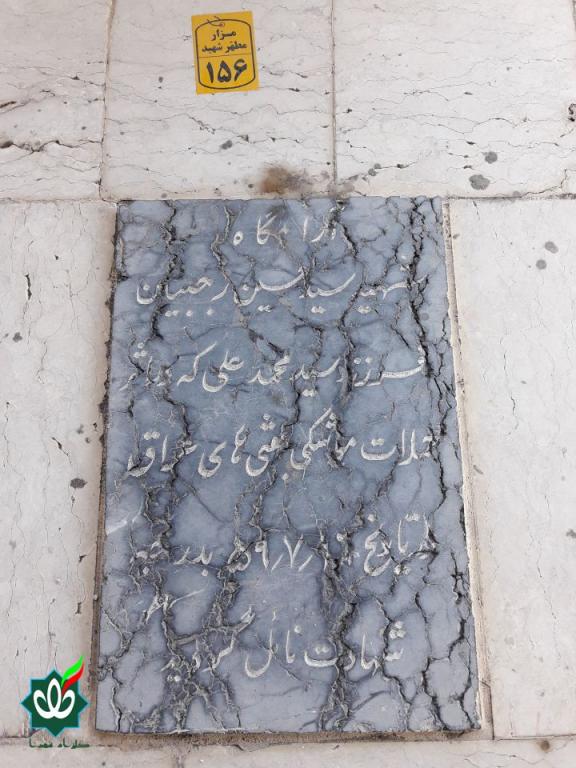 مزار
مطهر شهید
۱۵۶
آرامگاه
شهید سیدحسین رجبیان
فرزند سید محمد علی که در اثر
حملات موشکی بعثی های عراق
در تاریخ ۵۹/۷/ بدرجه
شهادت نائل گردید